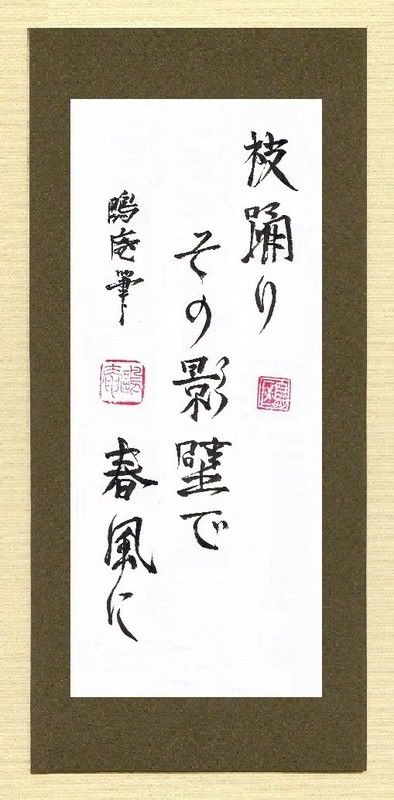 枝踊り
その影壁で
春風に
鴎庵筆